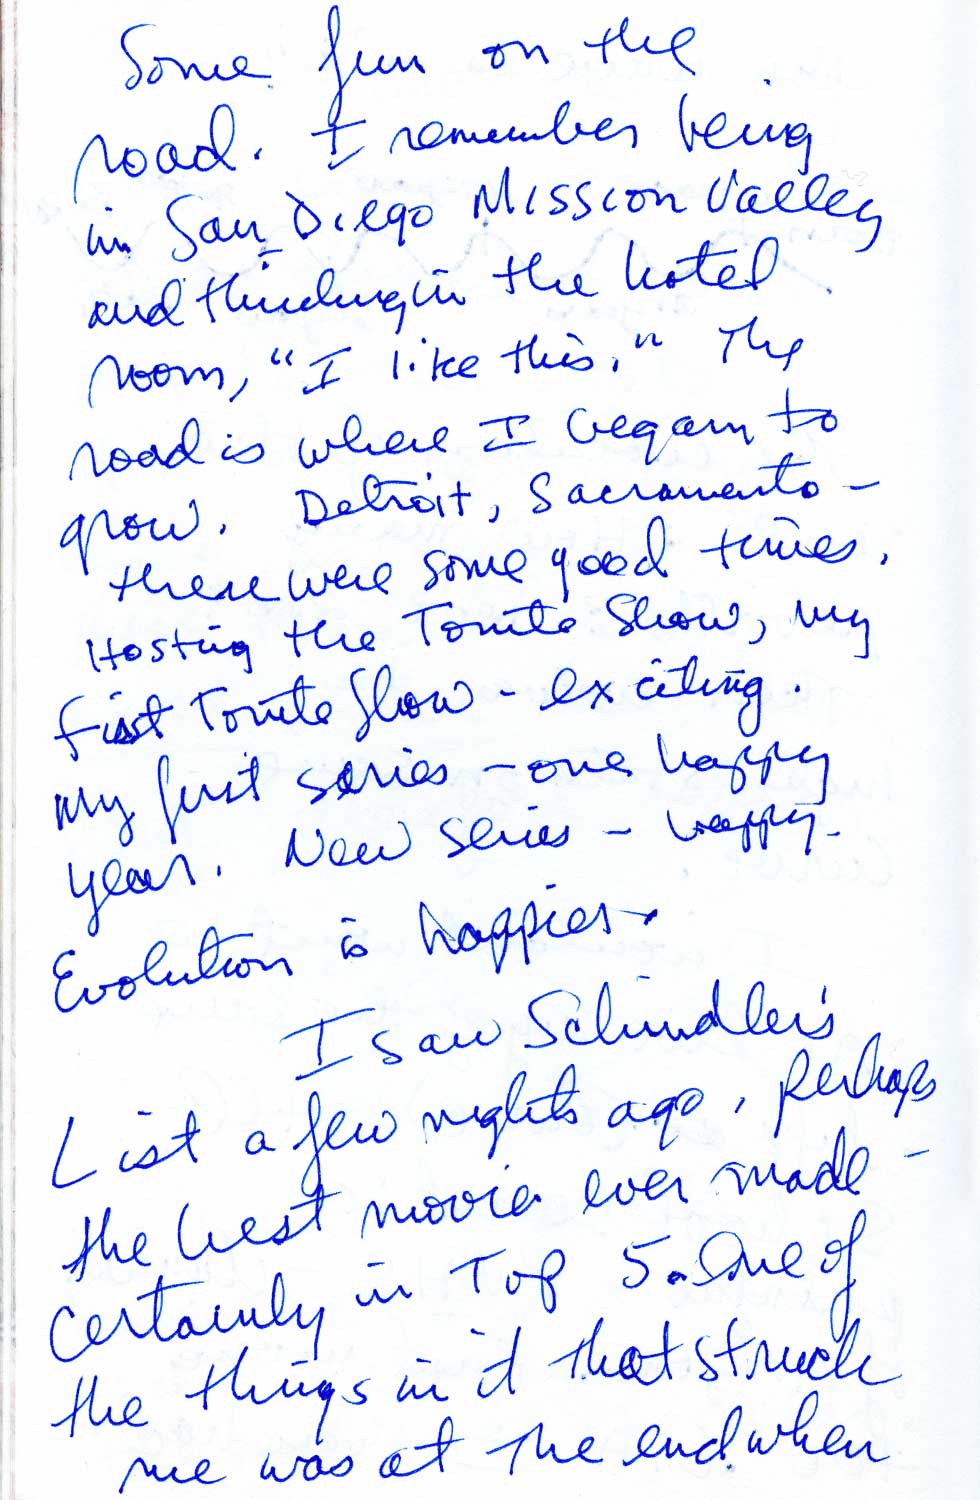 Some fun on the
road. I remember being
in San Diego Mission Valley
and thinking in the hotel
room, "I like this." The
road is where I began to
grow. Detroit, Sacramento –
there were some good times.
Hosting the Tonite Show, my
first Tonite Show – exciting.
My first series – one happy
year. New series – happy.
Evolution is happier.
I saw Schindler's
List a few nights ago, perhaps
the best movie ever made –
certainly in Top 5. One of
the things in it that struck
me was at the end when